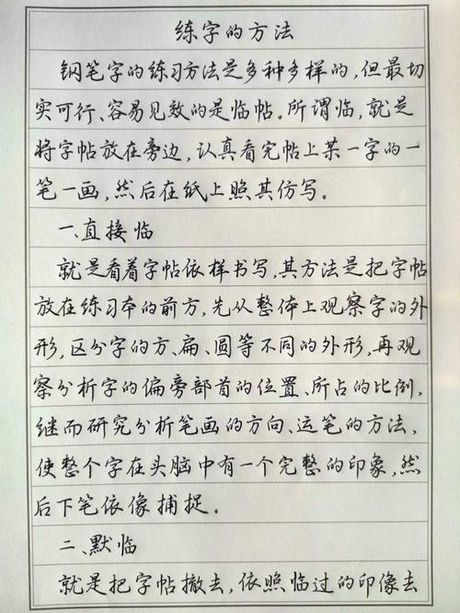 练字的方法
钢笔字的练习方法是多种多样的,但最切
实可行、容易见效的是临帖。所谓临,就是
将字帖放在旁边,认真看完帖上某一字的一
笔一画,然后在纸上照其仿写。
一、直接临
就是看着字帖依样书写,其方法是把字帖
放在练习本的前方,先从整体上观察字的外
形,区分字的方、扁、圆等不同的外形,再观
察分析字的偏旁部首的位置、所占的比例,
继而研究分析笔画的方向、运笔的方法,
使整个字在头脑中有一个完整的印象,然
后下笔依像捕捉。
二、默临
就是把字帖撤去,依照临过的印像去